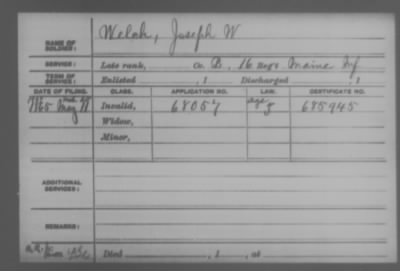 NAME OF SOLDIER: Welch, Joseph W
SERVICE: Late rank, Co. B, 16 Reg't Maine Inf
TERM OF SERVICE: Enlisted , 1 Discharged , 1
DATE OF FILING. CLASS. APPLICATION NO. LAW. CERTIFICATE NO.
1865 May Invalid, 68057 685945
Widow,
Minor,
ADDITIONAL SERVICES:
REMARKS:
Died , 1 , at